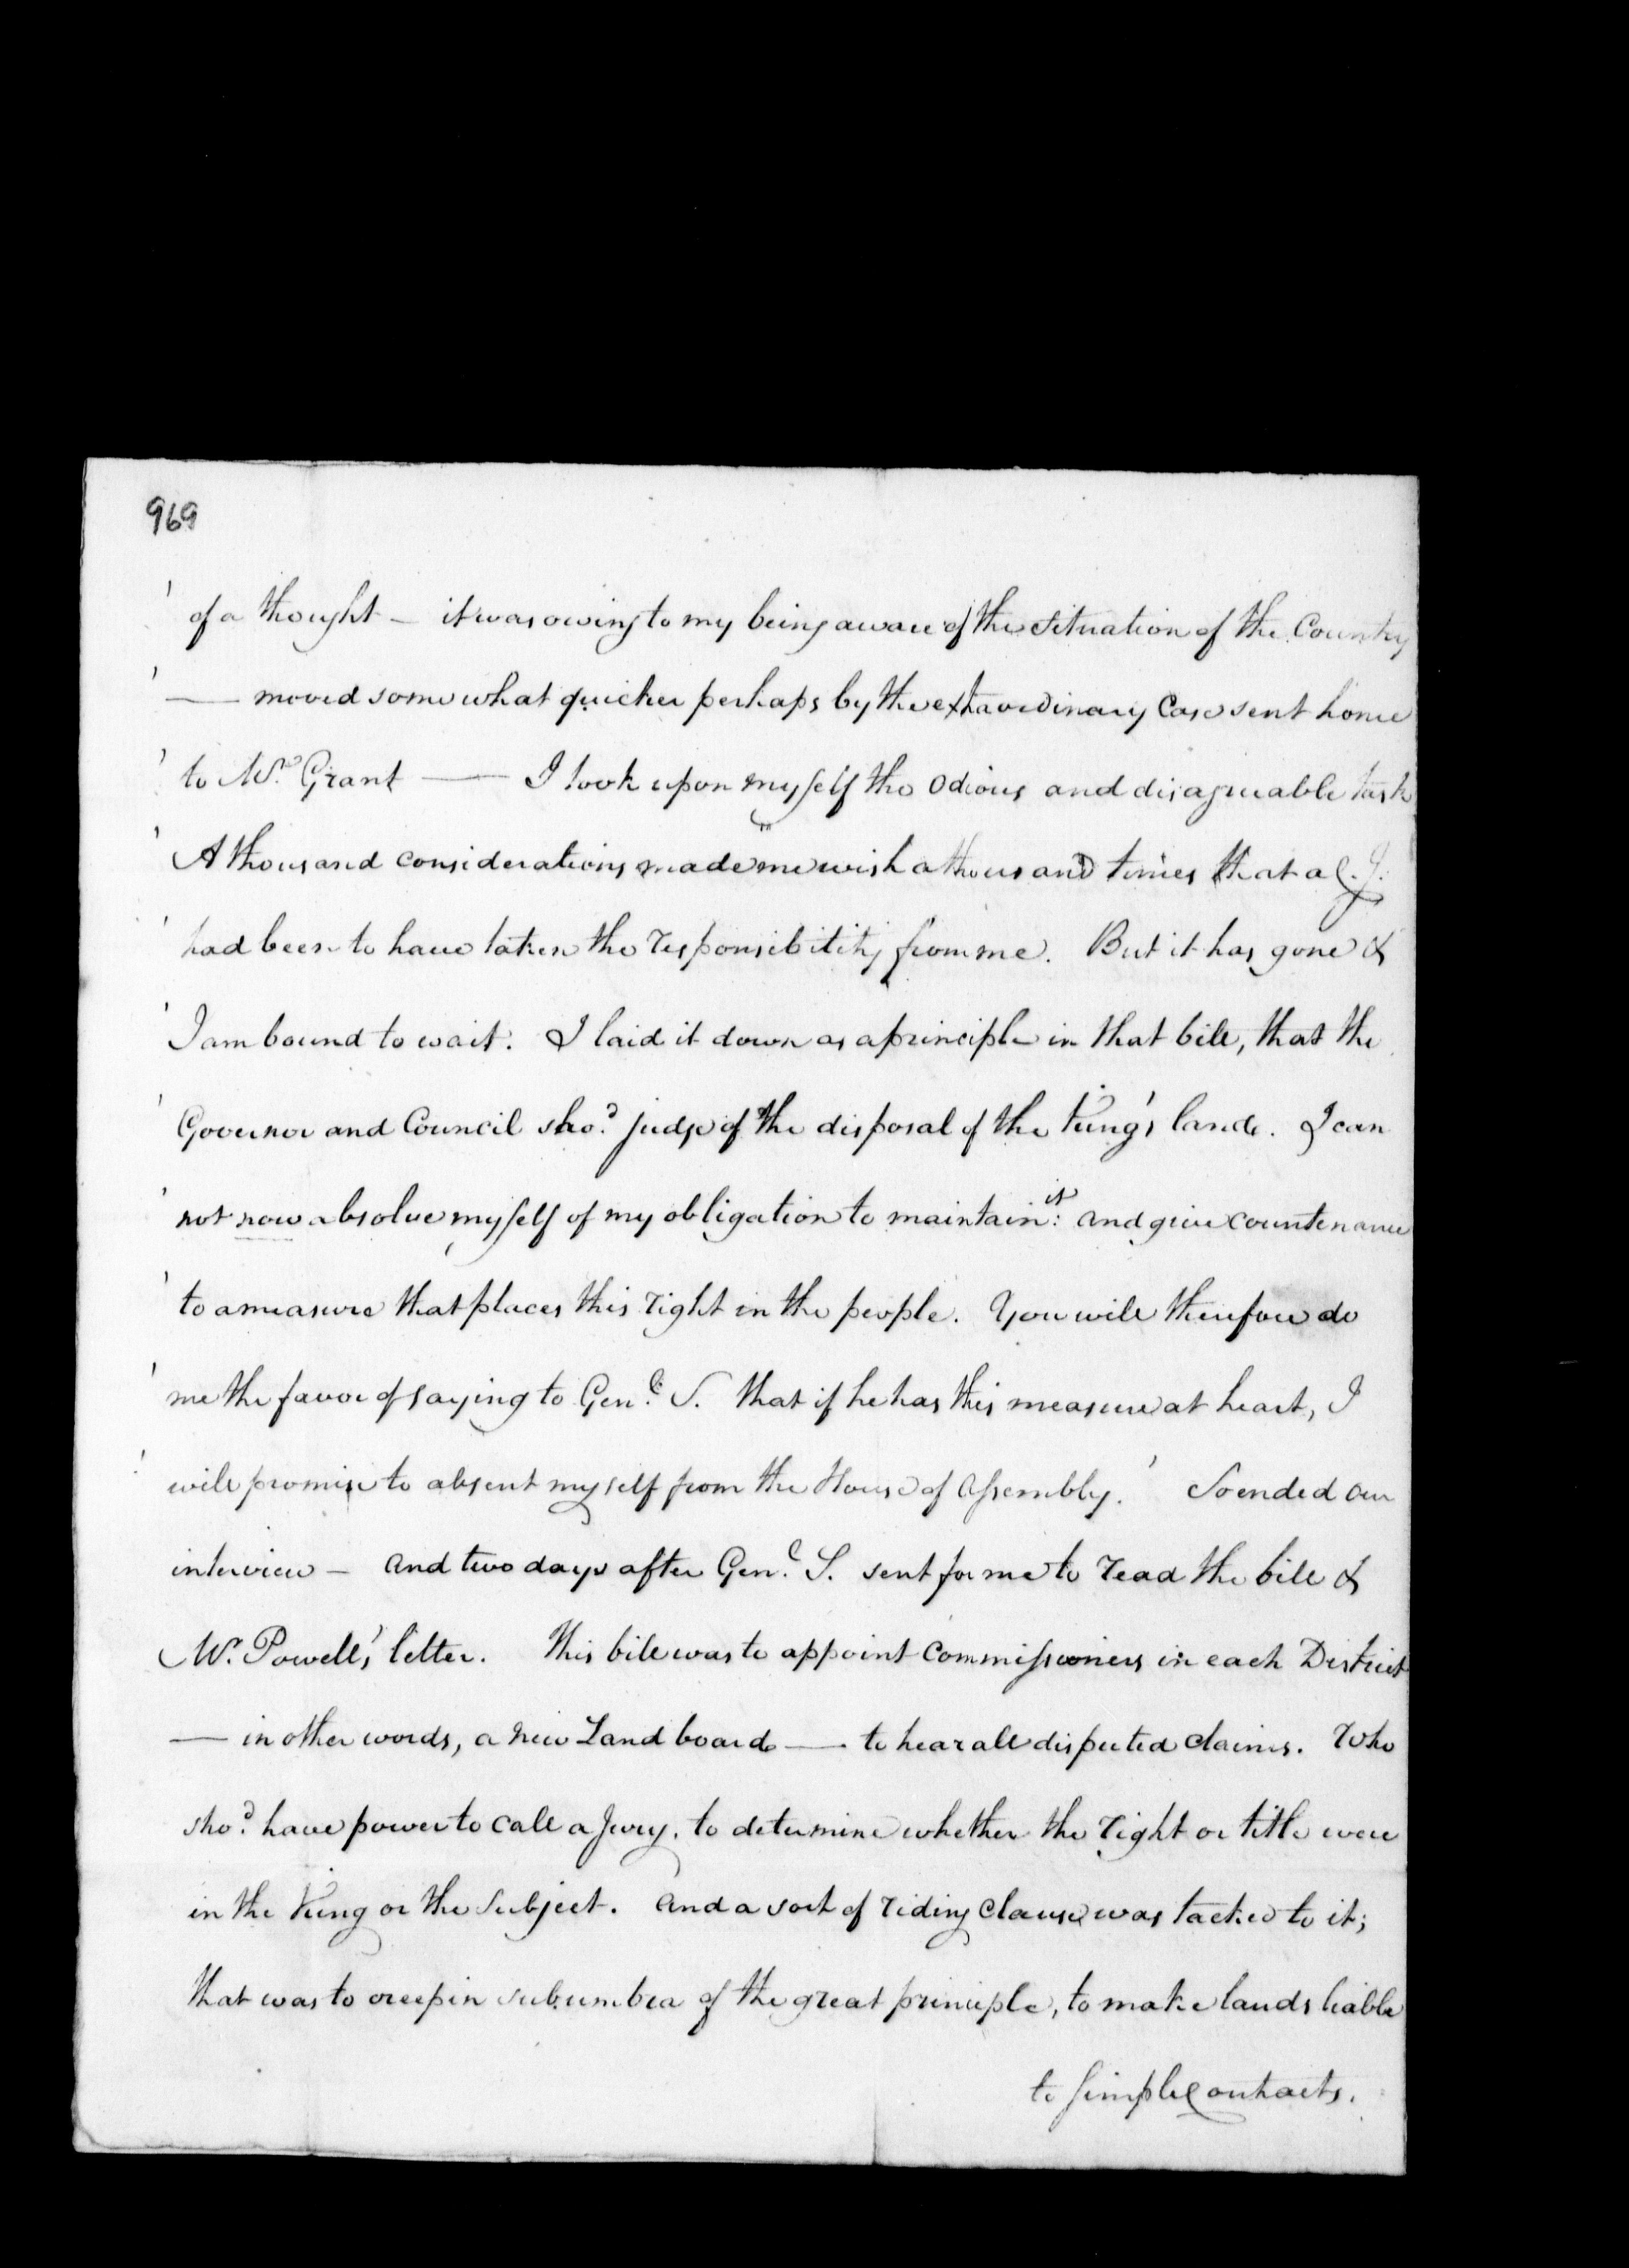 969
' of a thought — it was owing to my being aware of the situation of the Country
' — moved somewhat quicker perhaps by the extraordinary Case sent home
' to Mr. Grant — I took upon myself the odious and disagreeable task
' A thousand considerations made me wish a thousand times that a C. J.
' had been to have taken the responsibility from me. But it has gone &
' I am bound to wait. I laid it down as a principle in that bill, that the
' Governor and Council shod. judge of the disposal of the King's lands. I can
' not now absolve myself of my obligation to maintain it: and give countenance
' to a measure that places this right in the people. You will therefore do
' me the favor of saying to Genl. S. that if he has this measure at heart, I
' will promise to absent myself from the House of Assembly.' So ended our
interview — and two days after Genl. S. sent for me to read the bill &
Mr. Powell's letter. This bill was to appoint Commissioners in each District
— in other words, a new Land board — to hear all disputed claims. Who
shod. have power to call a Jury. to determine whether the right or title were
in the King or the Subject. And a sort of riding Clause was tacked to it;
that was to creep in sub umbra of the great principle, to make lands liable
to simple contracts.